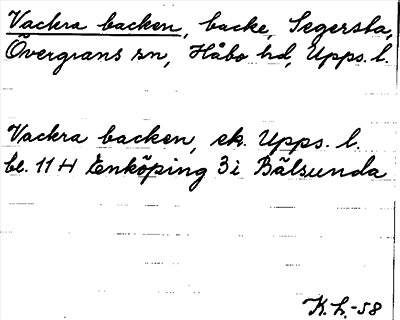 Vackra backen, backe, Segersta,
Övergrans sn, Håbo hd, Upps. l.
Vackra backen, ek. Upps. l.
bl. 11 H Enköping 3i Bälsunda
K.L.-58